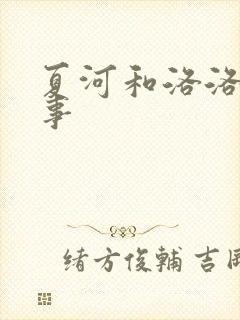 夏河和洛洛
事
緒方俊輔 吉岡